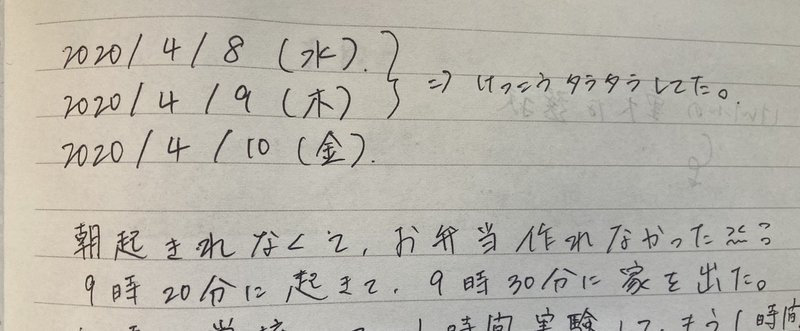 2020/4/8 (水).
2020/4/9 (木) } ⇒ けっこうダラダラしてた。
2020/4/10 (金).
朝起きれなくて、お弁当作れなかった
9時20分に起きて、9時30分に家を出た。
時間実験して、もう1時間